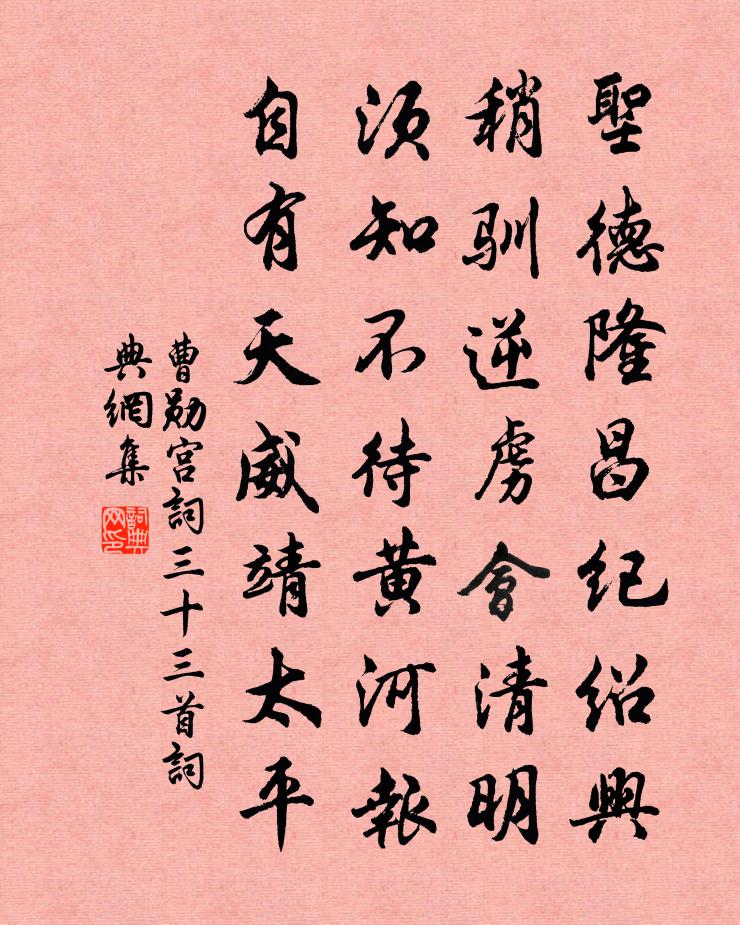 聖德隆昌紀紹興
稍馴逆虜會清明
須知不待黃河報
自有天威靖太平
曹勛宮詞三十三首詞
典網集
詞典
网印